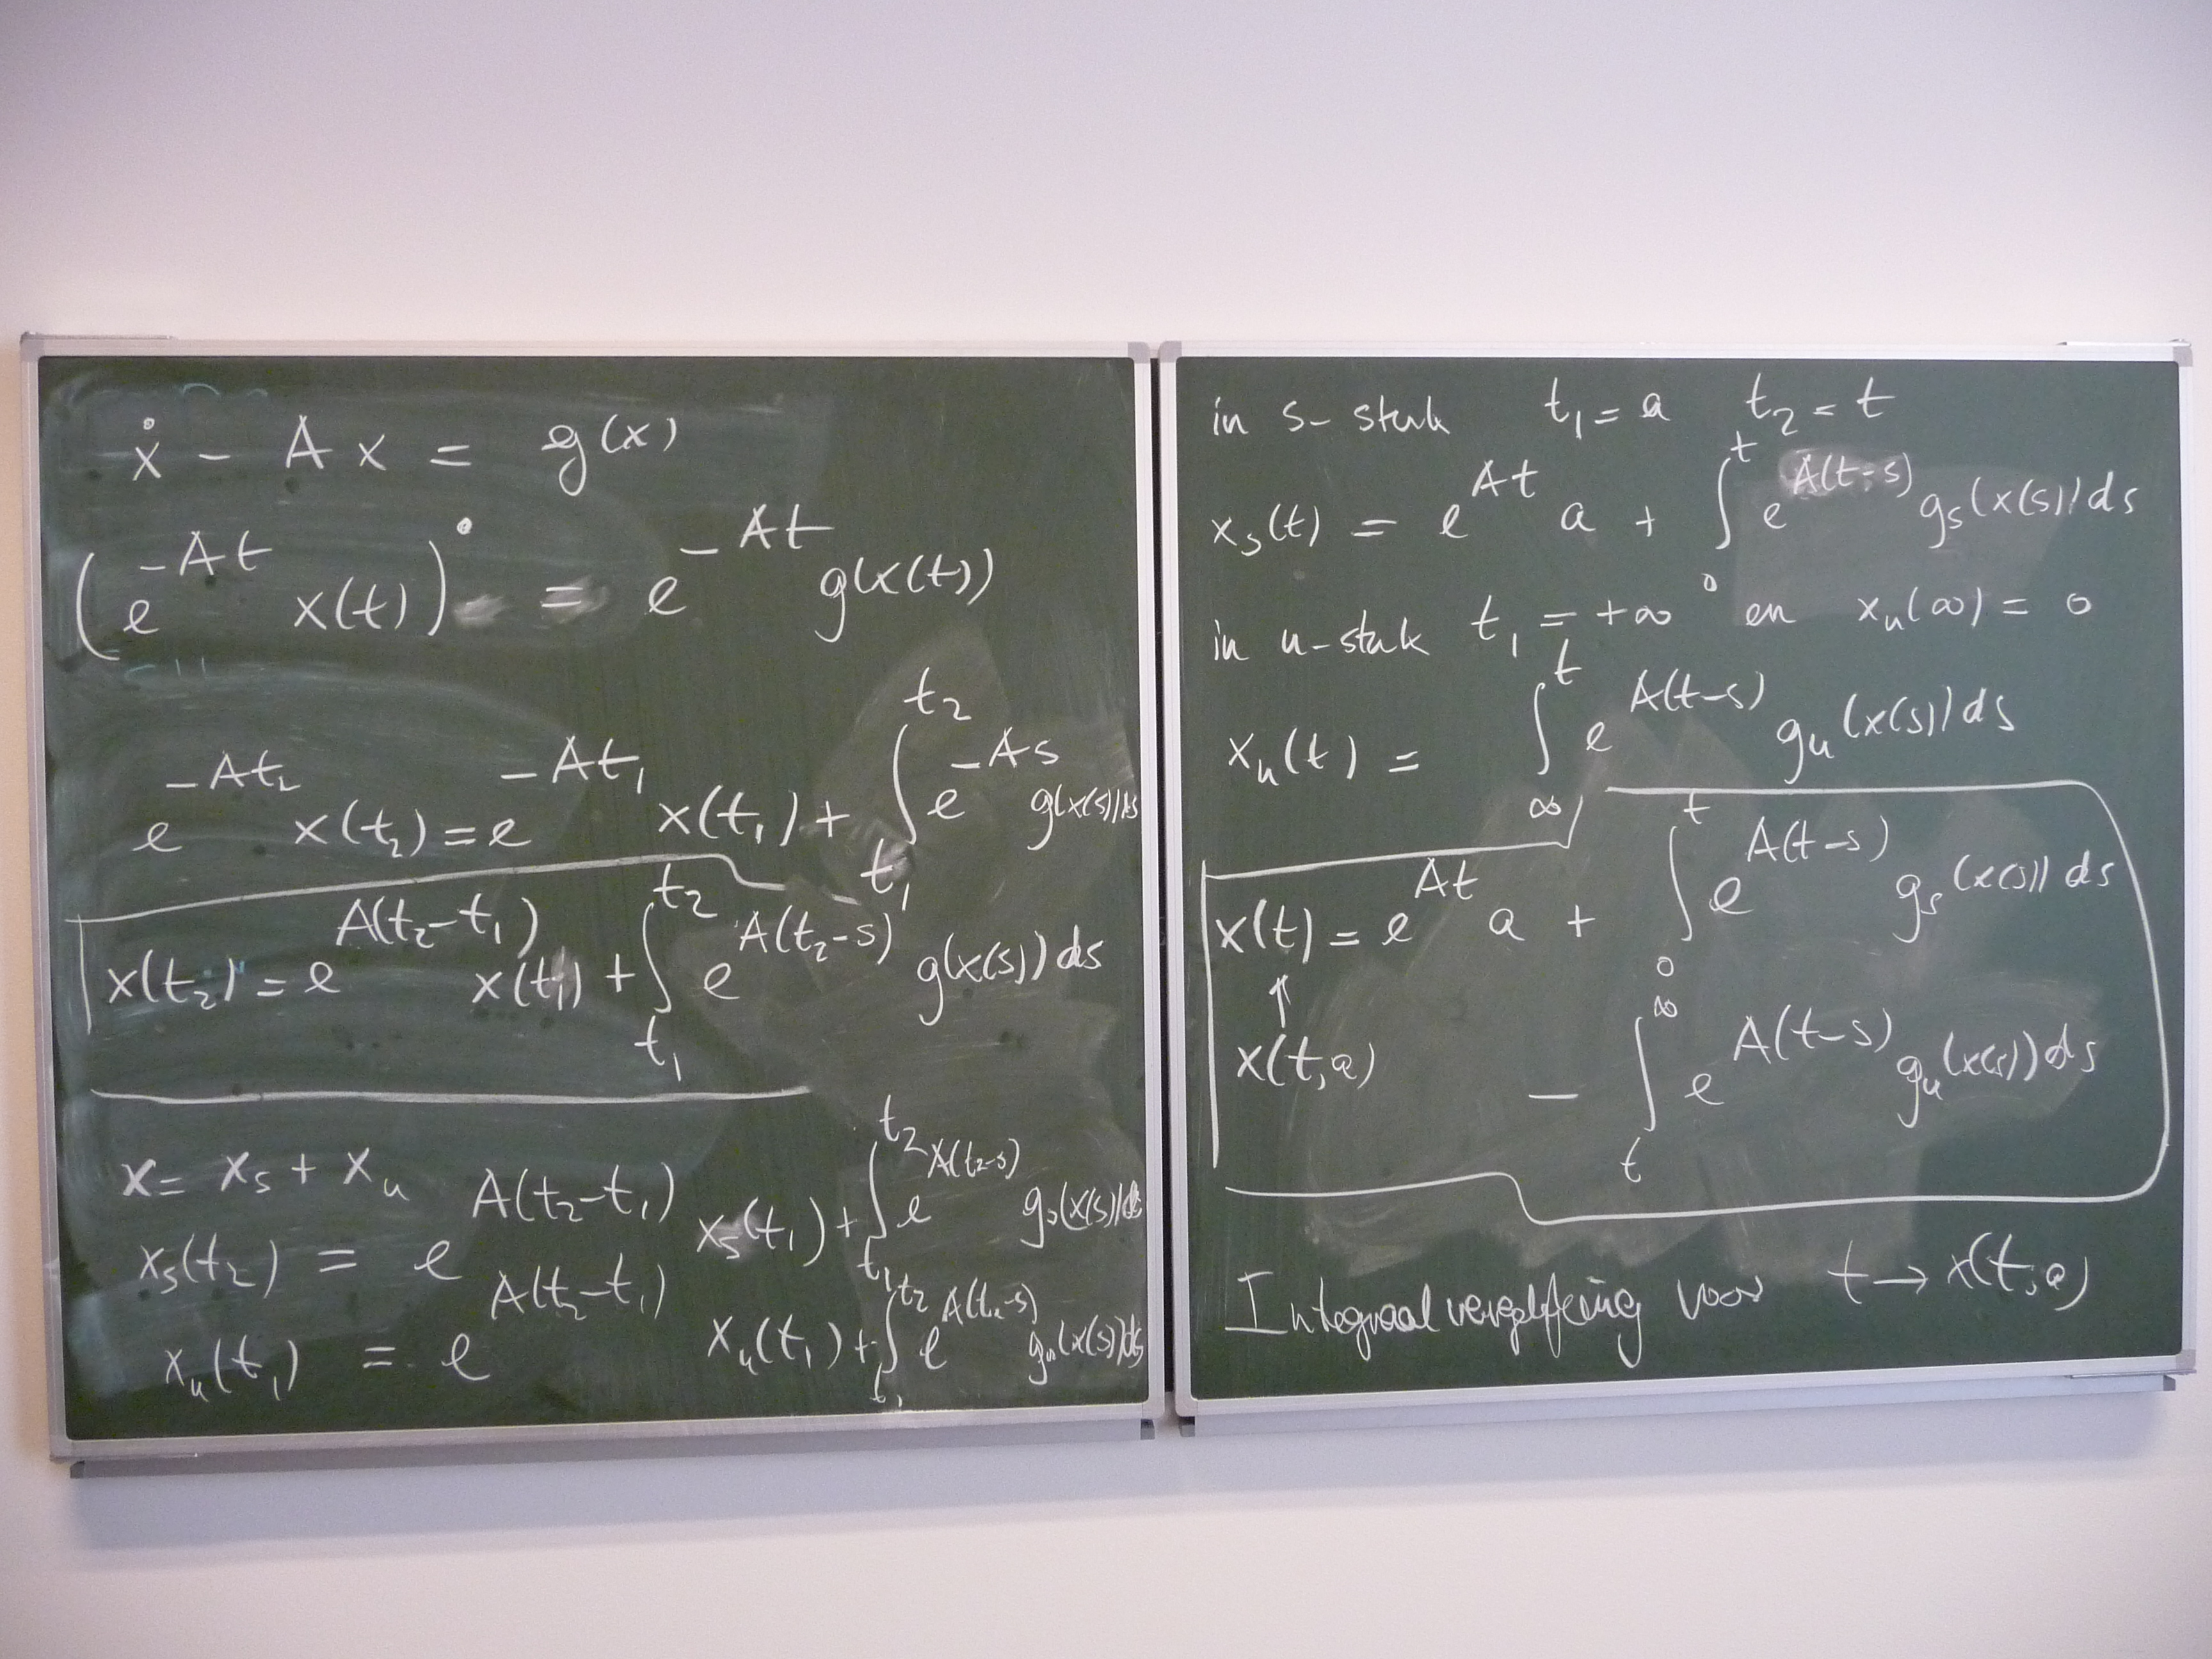 ẋ - A x = g(x)
(e^{-At} x(t))^• = e^{-At} g(x(t))
e^{-At₂} x(t₂) = e^{-At₁} x(t₁) + ∫_{t₁}^{t₂} e^{-As} g(x(s))ds
x(t₂) = e^{A(t₂-t₁)} x(t₁) + ∫_{t₁}^{t₂} e^{A(t₂-s)} g(x(s)) ds
x = x_s + x_u
x_s(t₂) = e^{A(t₂-t₁)} x_s(t₁) + ∫_{t₁}^{t₂} e^{A(t₂-s)} g_s(x(s))ds
x_u(t₁) = e^{A(t₂-t₁)} x_u(t₁) + ∫_{t₁}^{t₂} e^{A(t₂-s)} g_u(x(s))ds
in s-stuk t₁ = a t₂ = t
x_s(t) = e^{At} a + ∫_0^t e^{A(t-s)} g_s(x(s))ds
in u-stuk t₁ = +∞ en x_u(∞) = 0
x_u(t) = ∫_∞^t e^{A(t-s)} g_u(x(s))ds
x(t) = e^{At} a + ∫_0^t e^{A(t-s)} g_s(x(s)) ds
↑
x(t,a) - ∫_t^∞ e^{A(t-s)} g_u(x(s))ds
Integraalvergelijking voor t → x(t,a)